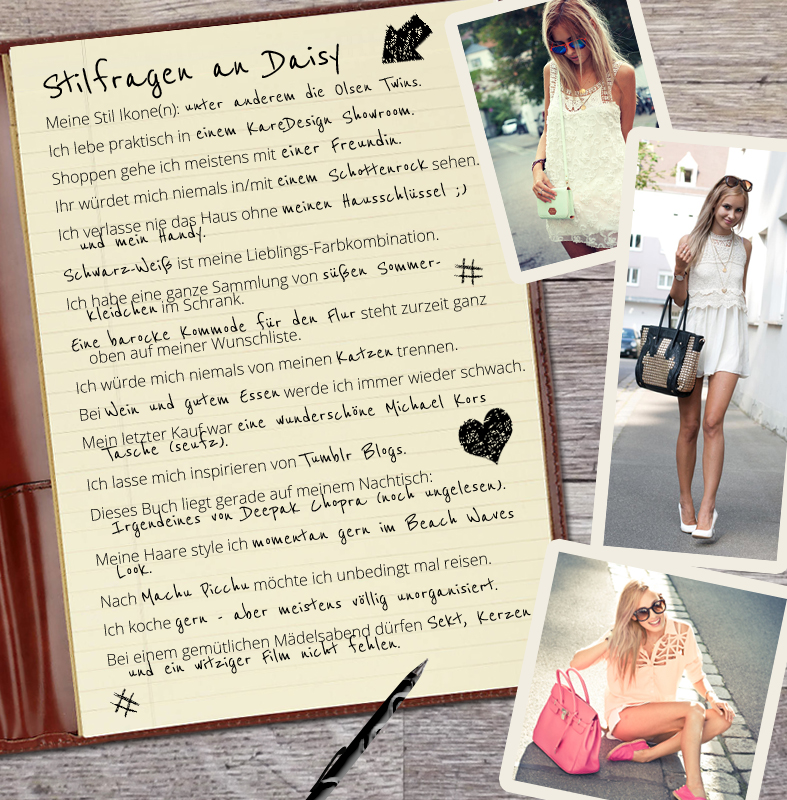 Stilfragen an Daisy
Meine Stil Ikone(n): unter anderem die Olsen Twins.
Ich lebe praktisch in einem KareDesign Showroom.
Shoppen gehe ich meistens mit einer Freundin.
Ihr würdet mich niemals in/mit einem Schottenrock sehen.
Ich verlasse nie das Haus ohne meinen Hausschlüssel ;)
und mein Handy.
Schwarz-Weiß ist meine Lieblings-Farbkombination.
Ich habe eine ganze Sammlung von süßen Sommer-
kleidchen im Schrank.
Eine barocke Kommode für den Flur steht zurzeit ganz
oben auf meiner Wunschliste.
Ich würde mich niemals von meinen Katzen trennen.
Bei Wein und gutem Essen werde ich immer wieder schwach.
Mein letzter Kauf war eine wunderschöne Michael Kors
Tasche (seufz).
Ich lasse mich inspirieren von Tumblr Blogs.
Dieses Buch liegt gerade auf meinem Nachtisch:
Irgendeines von Deepak Chopra (noch ungelesen).
Meine Haare style ich momentan gern im Beach Waves
Look.
Nach Machu Picchu möchte ich unbedingt mal reisen.
Ich koche gern - aber meistens völlig unorganisiert.
Bei einem gemütlichen Mädelsabend dürfen Sekt, Kerzen
und ein witziger Film nicht fehlen.